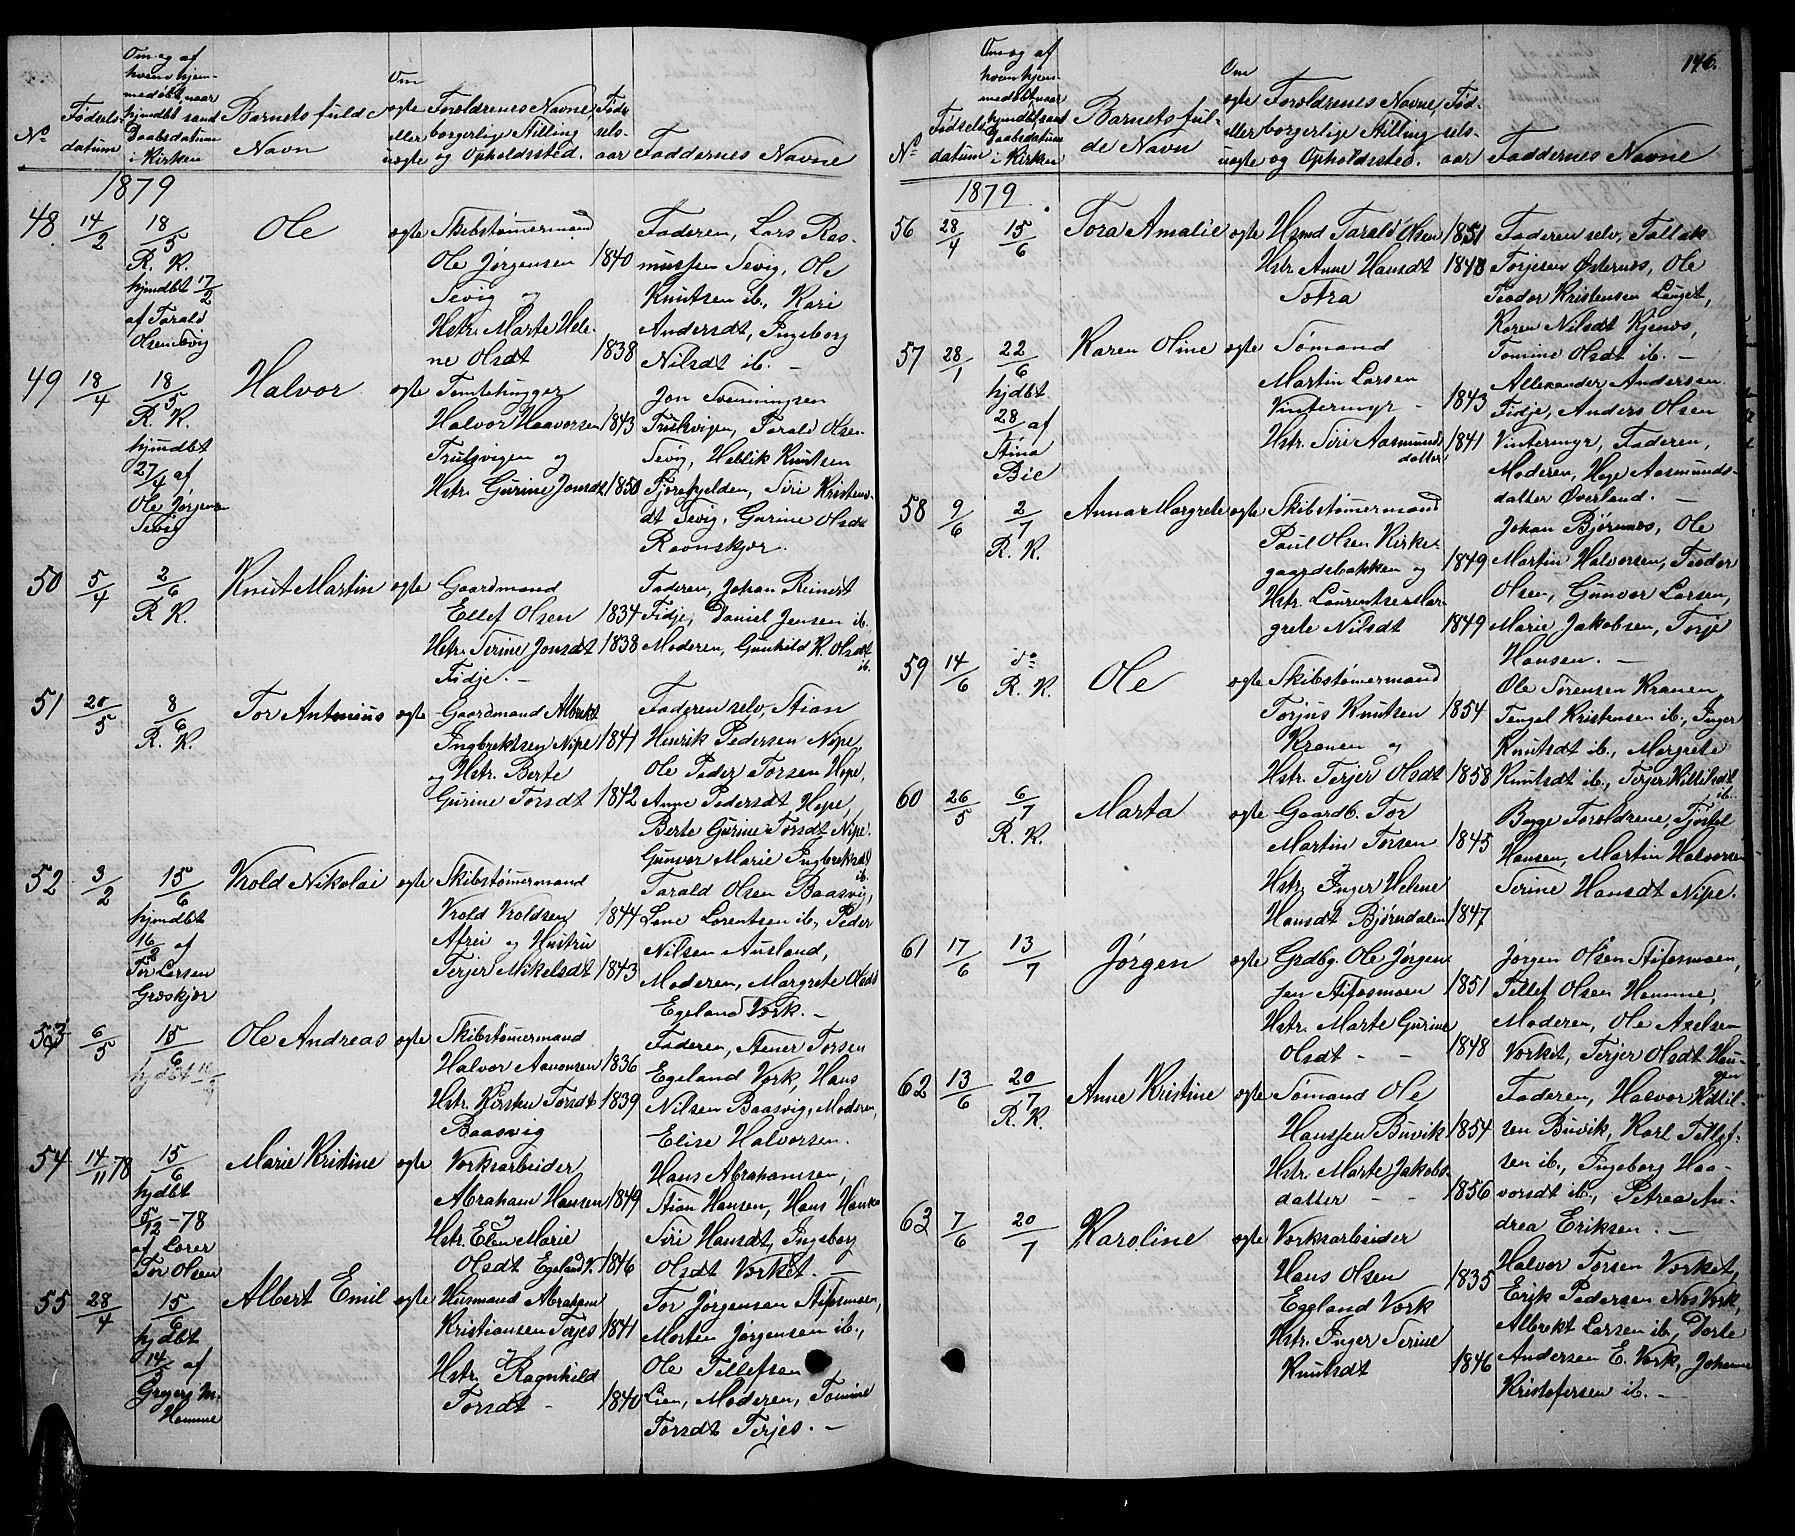 No
Fødsels-
datum
Om og af
hvem hjem-
medøbt, naar
hjmdbt samt
Daabsdatum
i Kirken
Barnets fulde
Navn
Om
ægte
eller
uægte
Forældrenes Navne,
borgerlige Stilling
og Opholdssted.
Fød-
sels-
aar
Faddernes Navne
1879
48. 14/2
18/5
R. K.
hjmdbt 17/2
af Tarald
Olsen Sevig
Ole
ægte
Skibstømermand
Ole Jørgensen 1840
Sevig og
Hstr. Marte Hele-
ne Olsdt 1838
Faderen, Lars Ras-
mussen Sevig, Ole
Knutsen ib., Kari
Andersdt, Ingeborg
Nilsdt ib. –
49 18/4
18/5
R. K.
hjmdbt
27/4 af
Ole Jørgensen
Sevig
Halvor
ægte
Tomtehugger
Halvor Haavorsen 1843
Trulsvigen og
Hstr. Gurine Jonsdt 1850
Jon Svenningsen
Trulsvigen, Tarald Olsen
Sevig, Kjøblik Knutsen
Fjorekjelden, Siri Kristens-
dt Sevig, Gurine Olsdt
Ravnskjær.
50 5/4
2/6
R. K.
Knut Martin
ægte
Gaardmand
Ellef Olsen 1834
Hstr. Serine Jonsdt 1838
Fidje. –
Faderen, Johan Reinert
Fidje, Daniel Jensen ib,
Moderen, Gunhild K. Olsdt
ib.
51 20/5
8/6
R. K.
Tor Antonius
ægte
Gaardmand Albrekt
Ingbrektsen Nipe 1841
og Hstr. Berte
Gurine Torsdt 1842
Faderen selv, Stian
Henrik Pedersen Nipe,
Ole Peder Torsen Hope,
Anne Pedersdt Hope,
Berte Gurine Torsdt Nipe.
Gunvor Marie Ingbrektsdt
ib.
52 3/2
15/6
hjmdbt
16/2 af
Tor Larsen
Græskjær
Vrold Nikolai
ægte
Skibstømermand
Vrold Vroldsen 1844
Afrei og Hustru
Terjer Mikelsdt 1843
Tarald Olsen Baasvig,
Lene Lorentsen ib., Peder
Nilsen Ausland,
Moderen, Margrete Olsdt
Egeland Værk. –
53 6/5
15/6
hjdbt
Ole Andreas
ægte
Skibstømermand
Halvor Aavonsen 1836
Hstr. Kirsten Torsdt 1839
Baasvig
Faderen, Stener Torsen
Egeland Værk, Hans
Nilsen Baasvig, Moderen,
Elise Halvorsen.
54 14/11 78
15/6
hjdbt
5/12 – 78
af Lærer
Tor Olsen
Marie Kristine
ægte
Værksarbeider
Abraham Hansen 1849
og
Hstr. Elen Marie
Olsdt Egeland V. 1846
Hans Abrahamsen,
Stian Hansen, Hans Hansen
Siri Hansdt, Ingeborg
Olsdt Værket. –
55 28/4
15/6
hjdbt
14/5 af
Gregers M.
Homme
Albert Emil
ægte
Husmand Abraham
Kristiansen Terjes 1841
og
Hstr. Ragnhild
Torsdt – 1840
Tor Jørgensen Stifosmoen,
Morten Jørgensen ib.,
Ole Tellefsen
Lien, Moderen, Tomine
Torsdt Terjes. –
146.
No
Fødsels-
datum
Om og af
hvem hjem-
medøbt, naar
hjmdbt samt
Daabsdatum
i Kirken
Barnets ful-
de Navn
Om
ægte
eller
uægte
Forældrenes Navne,
borgerlige Stilling
og Opholdssted.
Fød-
sels-
aar
Faddernes Navne
1879
56 28/4
15/6
Tora Amalie
ægte
Hsmd Tarald Olsen 1851
Hstr. Anne Hansdt 1848
Totra
Faderen selv, Tallak
Torjesen Østernæs, Ole
Teodor Kristensen Langet,
Karen Nilsdt Kjenæs,
Tomine Olsdt ib. –
57 28/1
22/6
hjdbt
28/1 af
Stina
Bie
Karen Oline
ægte
Sømand
Martin Larsen
Vintermyr – 1843
Hstr. Siri Aasmunds 1841
datter
Allexander Andersen
Fidje, Anders Olsen
Vintermyr, Faderen,
Moderen, Hege Aasmunds-
datter Øverland. –
58 9/6
2/7
R. K.
Anna Margrete
ægte
Skibstømermand
Paul Olsen Kirke-
gaardsbakken og 1849
Hstr. Laurentse Mar-
grete Nilsdt 1849
Johan Bjørnnæs, Ole
Martin Halvorsen, Teodor
Olsen, Gunvor Larsen,
Marie Jakobsen, Torje
Hansen. –
59 14/6
do
R. K.
Ole
ægte
Skibstømermand
Torjus Knutsen 1854
Kranen og
Hstr. Terjer Olsdt 1858
Ole Sørensen Kranen,
Tengel Kristensen ib., Inger
Knutsdt ib., Margrete
Knutsdt ib., Terjer Kittilsdt
ib.
60 26/5
6/7
R. K.
Marta
ægte
Gaardb. Tor
Martin Torsen 1845
Hstr. Inger Helene
Hansdt Bjørendalen 1847
Begge Forældrene, Tjøstel
Hansen, Martin Halvorsen
Serine Hansdt Nipe.
61 17/6
13/7
Jørgen
ægte
Grdbg. Ole Jørgen-
sen Stifosmoen 1851
Hstr. Marte Gurine
Olsdt – – 1848
Jørgen Olsen Stifosmoen,
Tellef Olsen Homme,
Moderen, Ole Axelsen
Værket, Terjer Olsdt Hau-
gen
62 13/6
20/7
R. K.
Anne Kristine
ægte
Sømand Ole
Hanssen Buvik 1854
Hstr. Marte Jakobs-
datter – – 1856
Faderen, Halvor Kittil-
sen Buvik, Karl Tellef-
sen ib., Ingeborg Haa-
vorsdt ib., Petrea An-
drea Eriksen. –
63 7/6
20/7
Karoline
ægte
Værksarbeider
Hans Olsen 1835
Egeland Værk
Hstr. Inger Serine
Knutsdt 1846
Halvor Torsen Værket,
Erik Pedersen Næs Værk,
Albrekt Larsen ib., Dorte
Andersen E. Værk, Johanne
Kristofersen ib. –